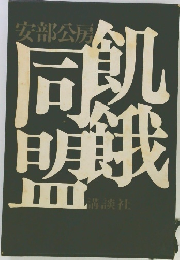 安部公房
飢餓
同盟
講談社